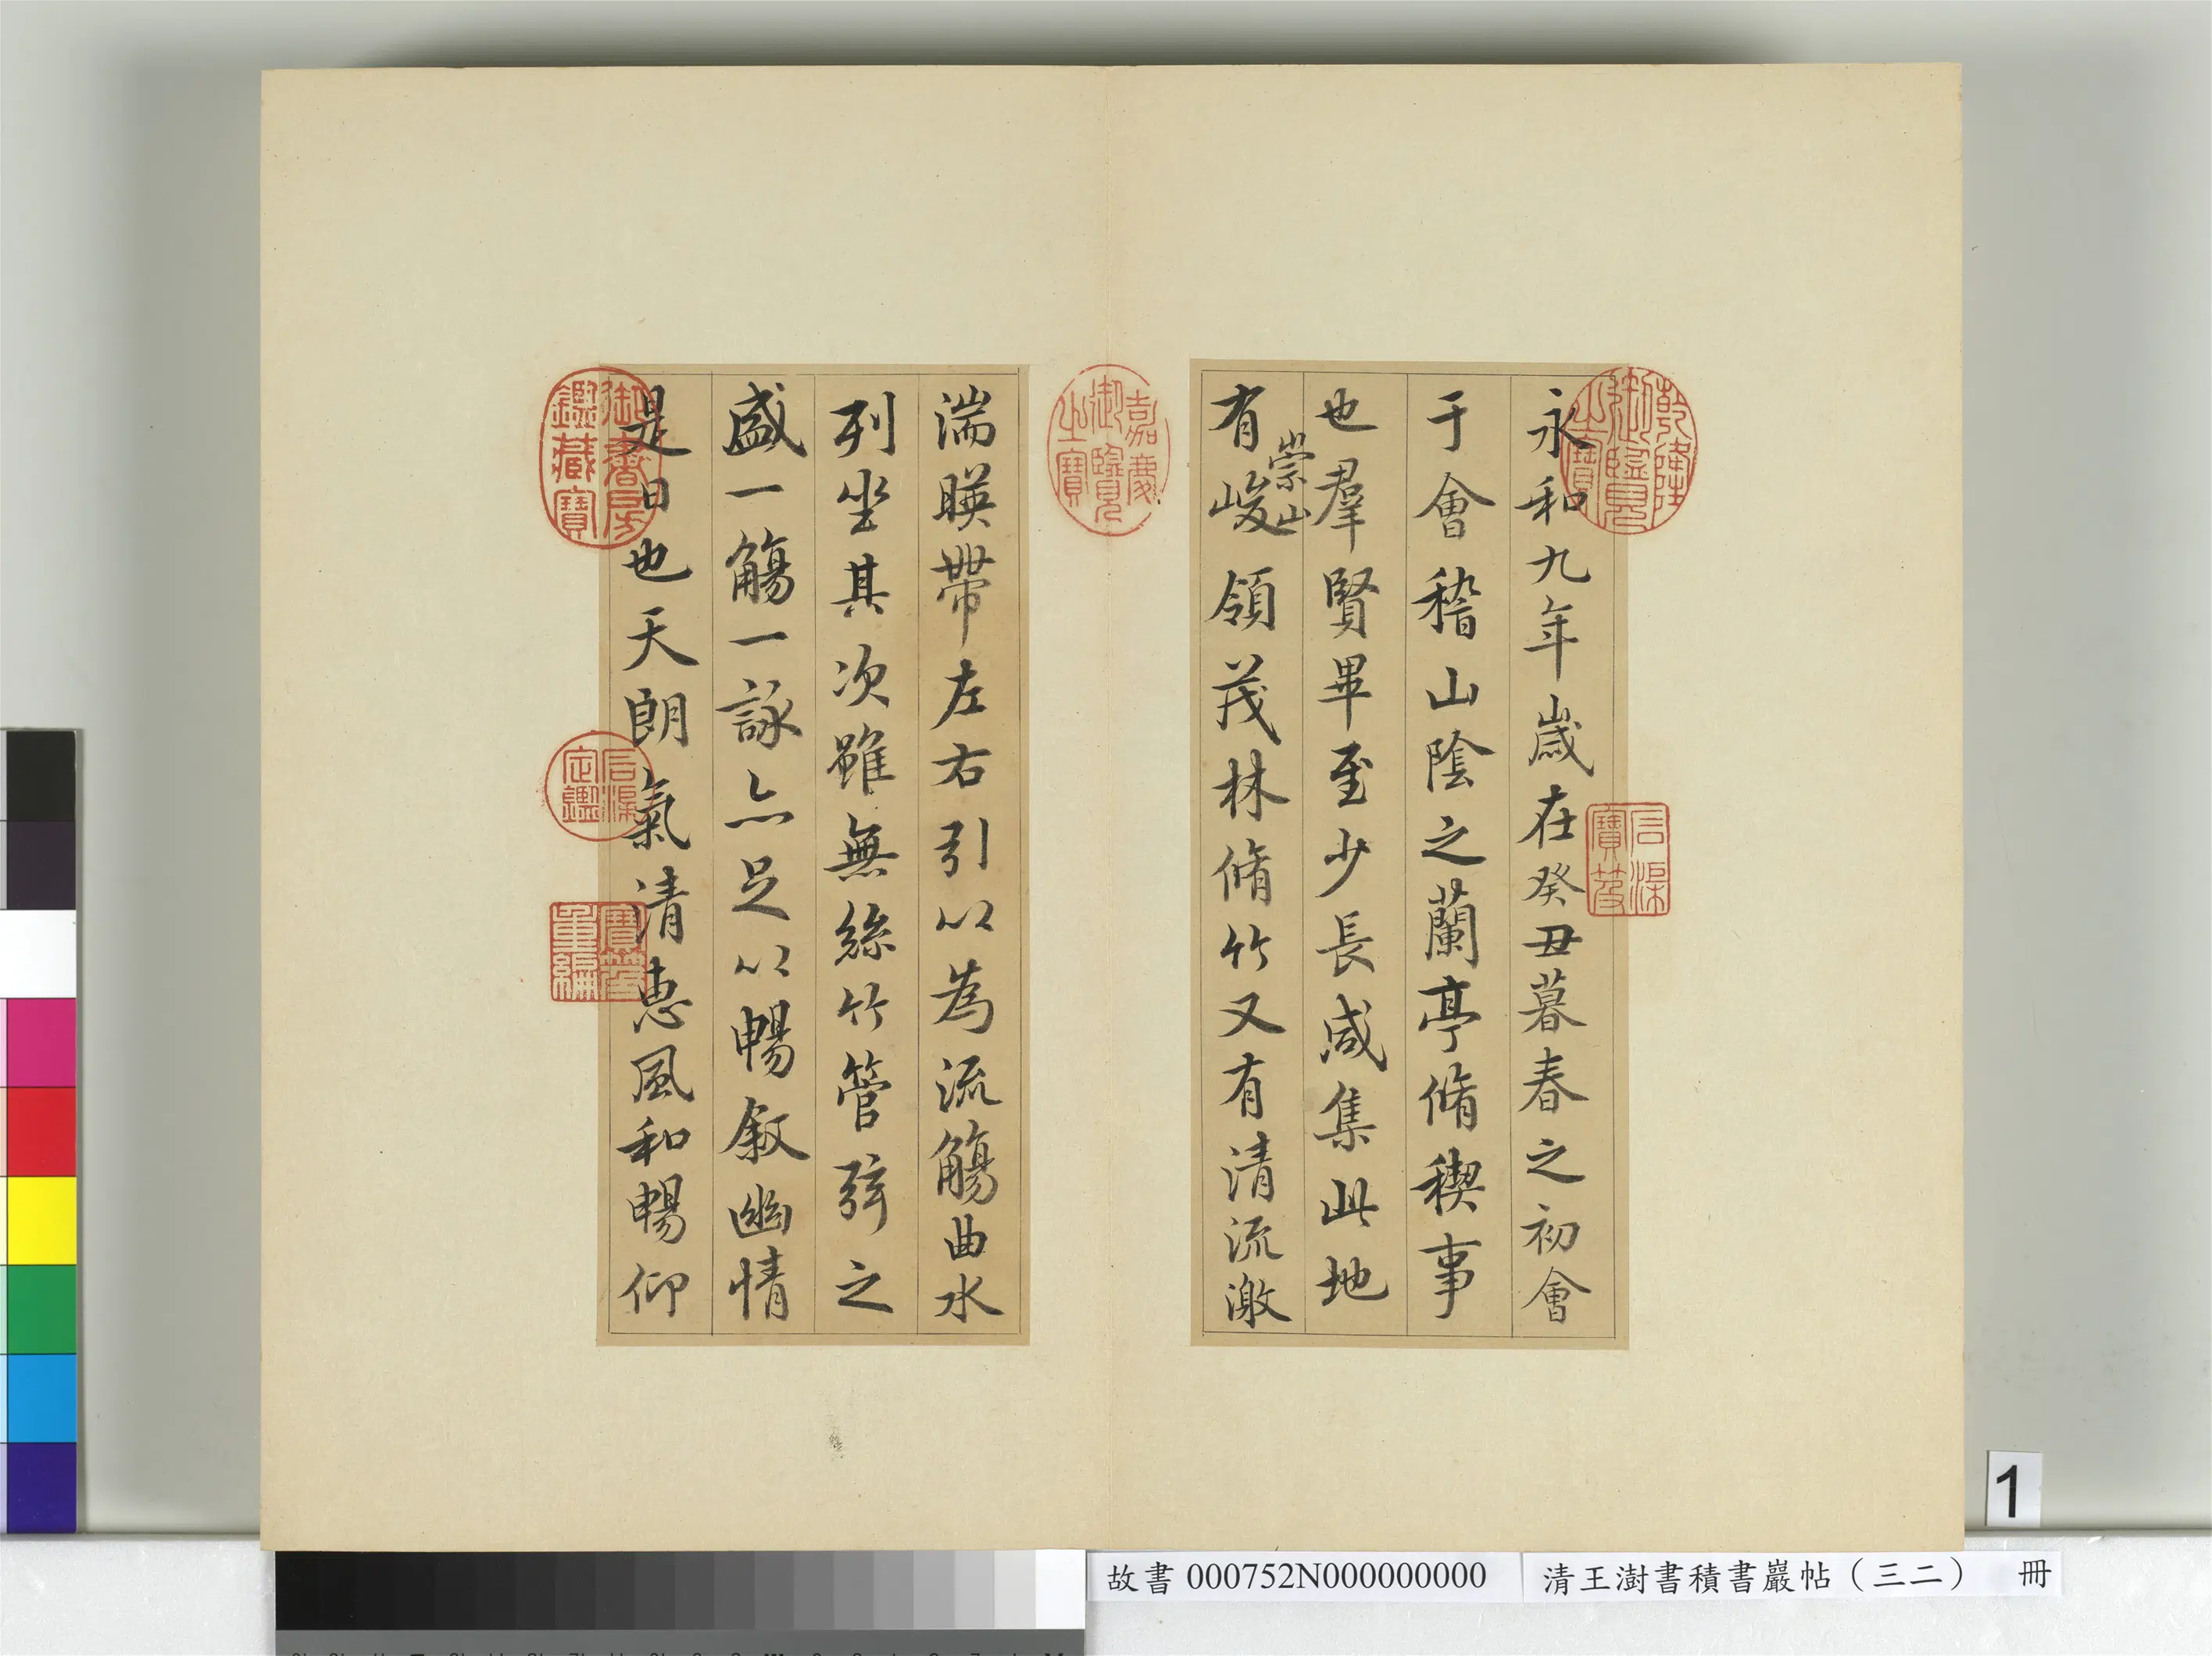 永和九年歲在癸丑暮春之初會
于會稽山陰之蘭亭脩稧事
也羣賢畢至少長咸集此地
有崇山峻領茂林脩竹又有清流激
湍暎帶左右引以為流觴曲水
列坐其次雖無絲竹管弦之
盛一觴一詠亦足以暢叙幽情
是日也天朗氣清惠風和暢仰
乾隆御覽之寶
石渠寶笈
嘉慶御覽之寶
御書房鑑藏寶
石渠定鑑
寶笈重編
1
故書 000752N000000000
清王澍書積書巖帖（三二） 冊